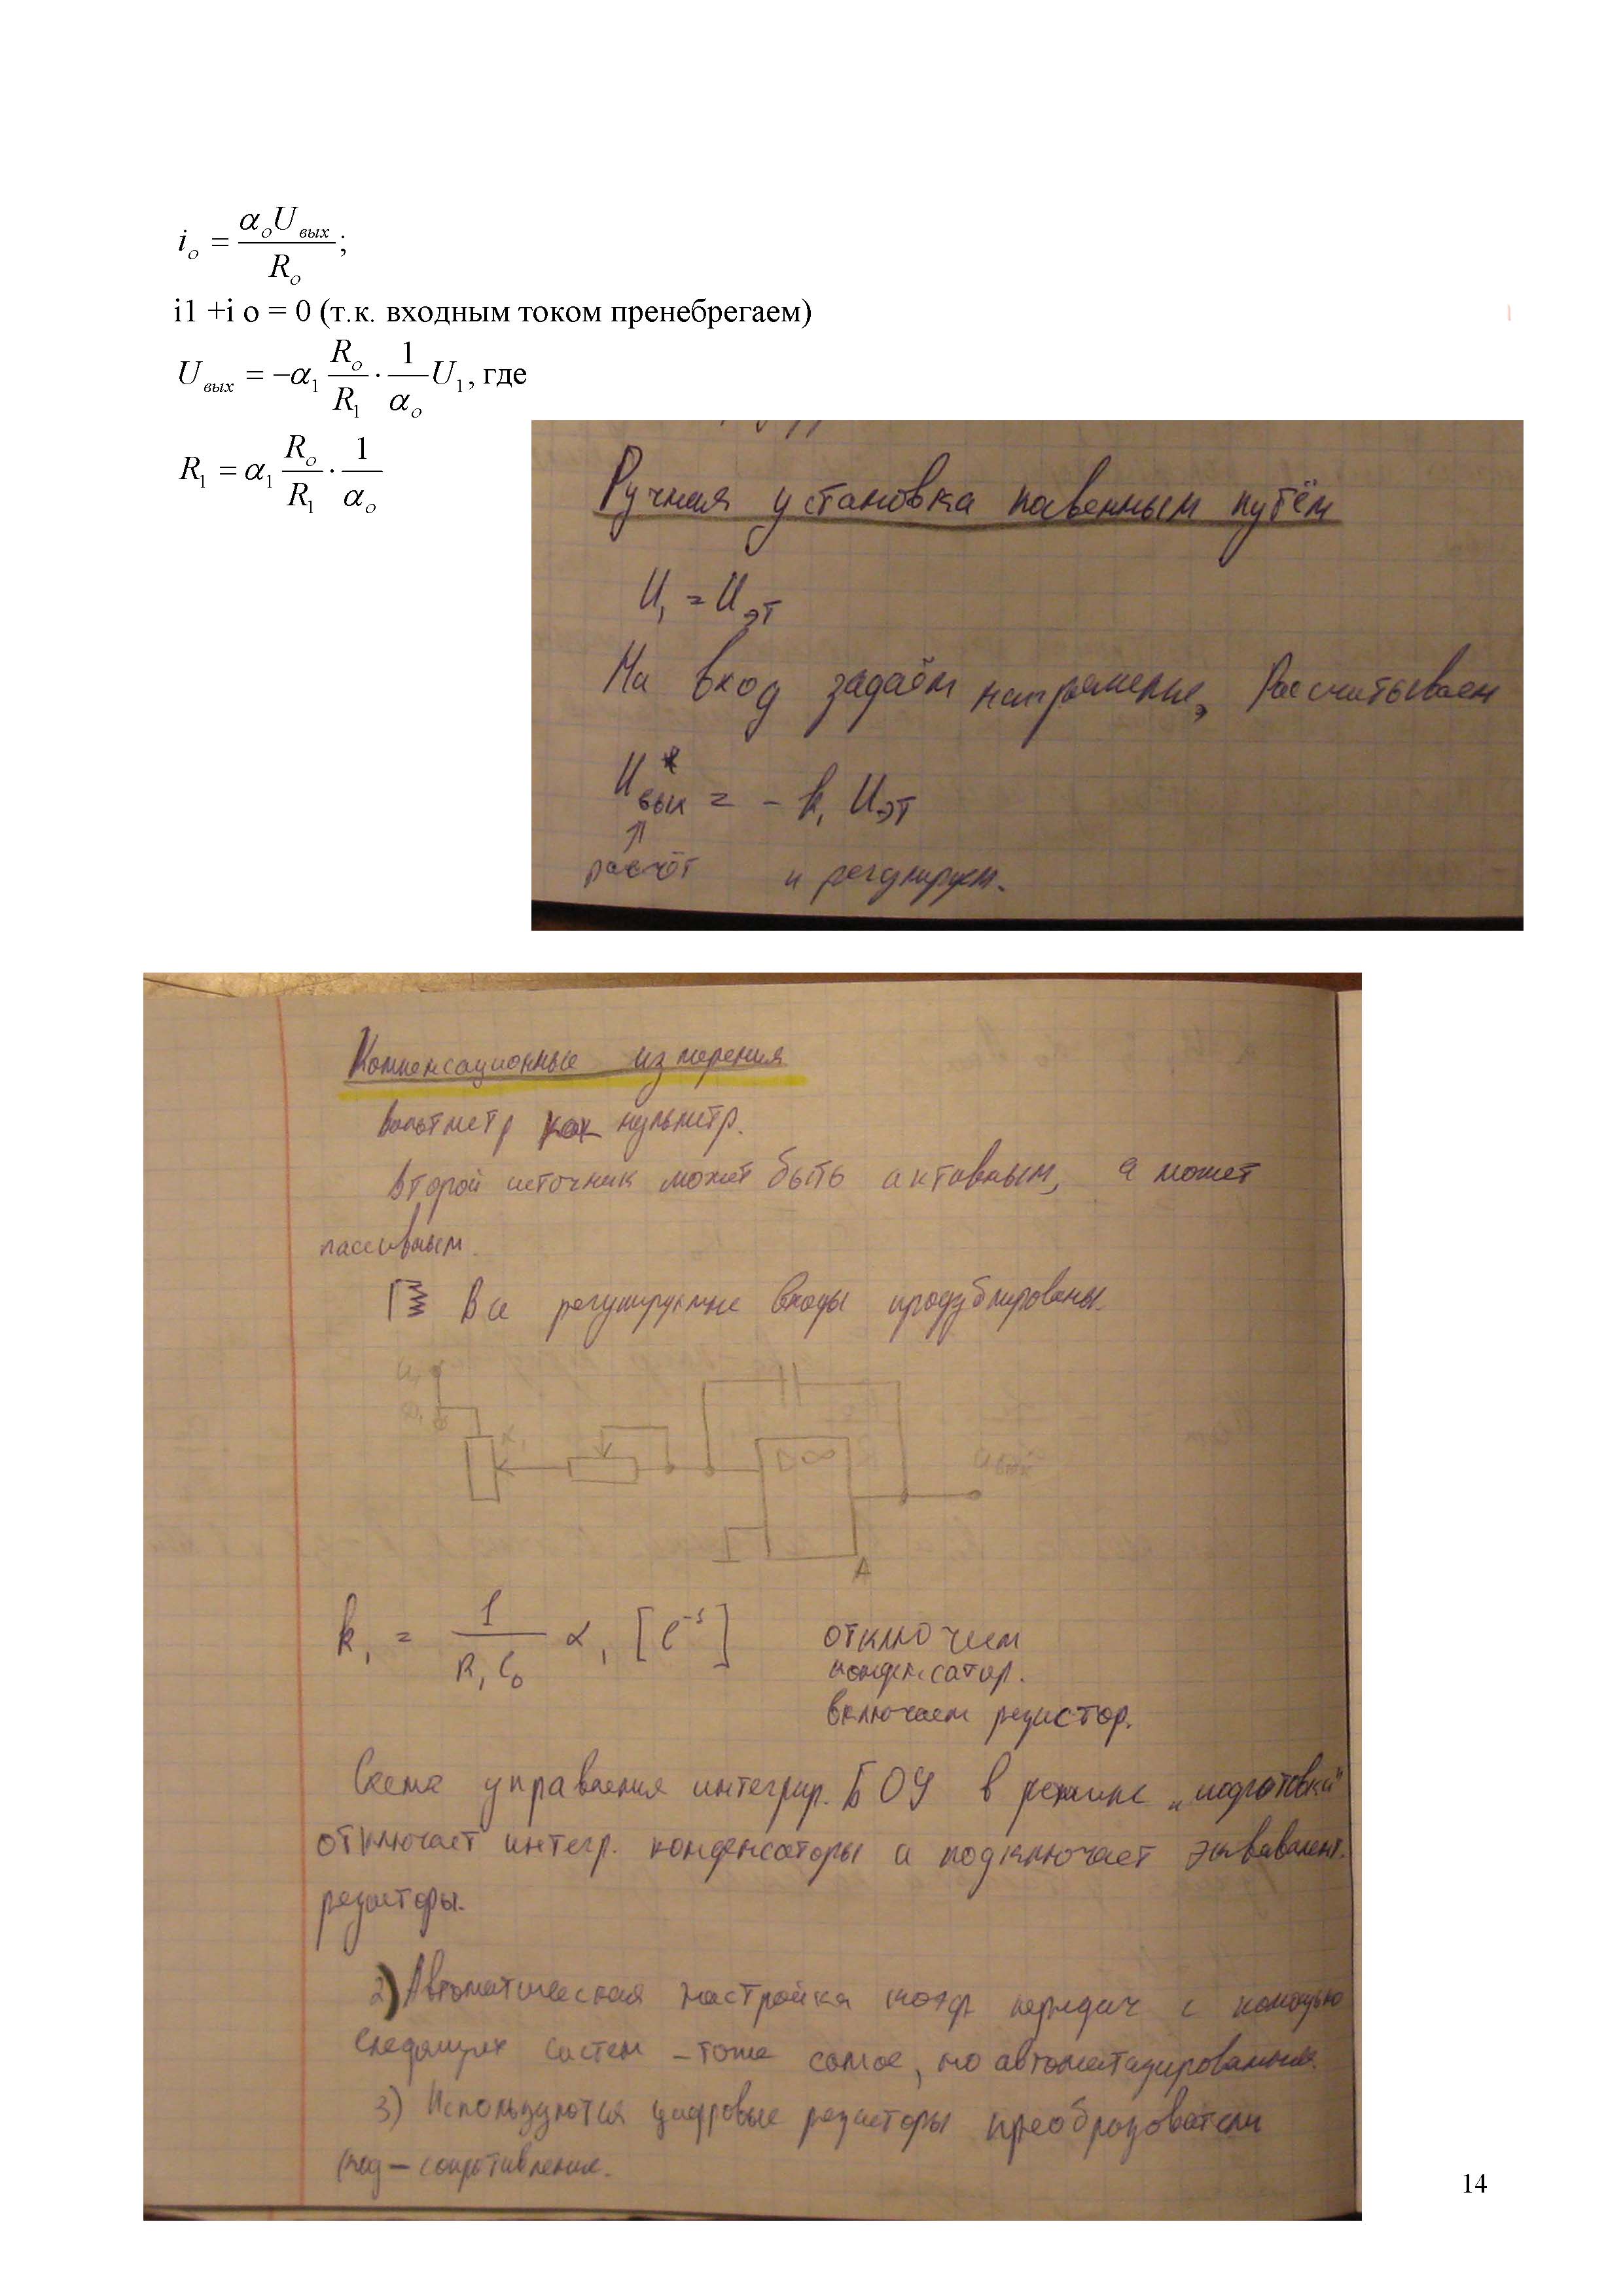 i_o = α_o U_вых / R_o ;
i1 +i o = 0 (т.к. входным током пренебрегаем)
U_вых = −α_1 R_o/R_1 · 1/α_o U_1, где
R_1 = α_1 R_o/R_1 · 1/α_o
Ручная установка косвенным путём
U_1 = U_эт
На вход задаём напряжение, Рассчитываем
U*_вых = - k_1 U_эт
↑
расчёт и регулируем.
Компенсационные измерения
вольтметр как нульметр.
второй источник может быть активным, а может
пассивным.
Все регулируемые входы продублированы.
U_1
α_1
▷∞
U_вых
k_1 = 1/(R_1 C_0) α_1 [с^-1]
отключаем
конденсатор.
включаем резистор.
Схема управления интегрир. БОУ в режиме „подготовки"
отключает интегр. конденсаторы и подключает эквивалент.
резисторы.
2) Автоматическая настройка коэф передач с помощью
следящих систем – тоже самое, но автоматизированные.
3) Используются цифровые резисторы преобразователи
(код – сопротивление.
14